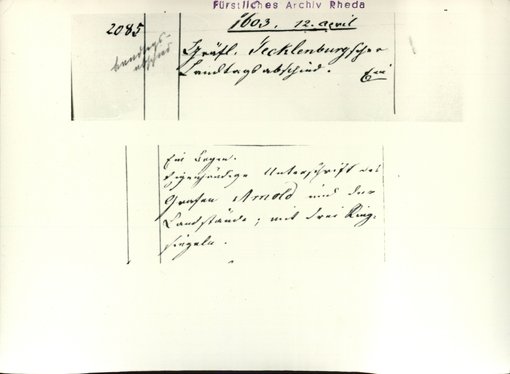 Fürstliches Archiv Rheda
2085
1603. 12. April
Landtags-
abschied
Gräfl. Tecklenburgscher
Landtagsabschied.
Ein Bogen.
Eigenhändige Unterschrift des
Grafen Arnold und der
Landstände; mit drei Ring-
siegeln.